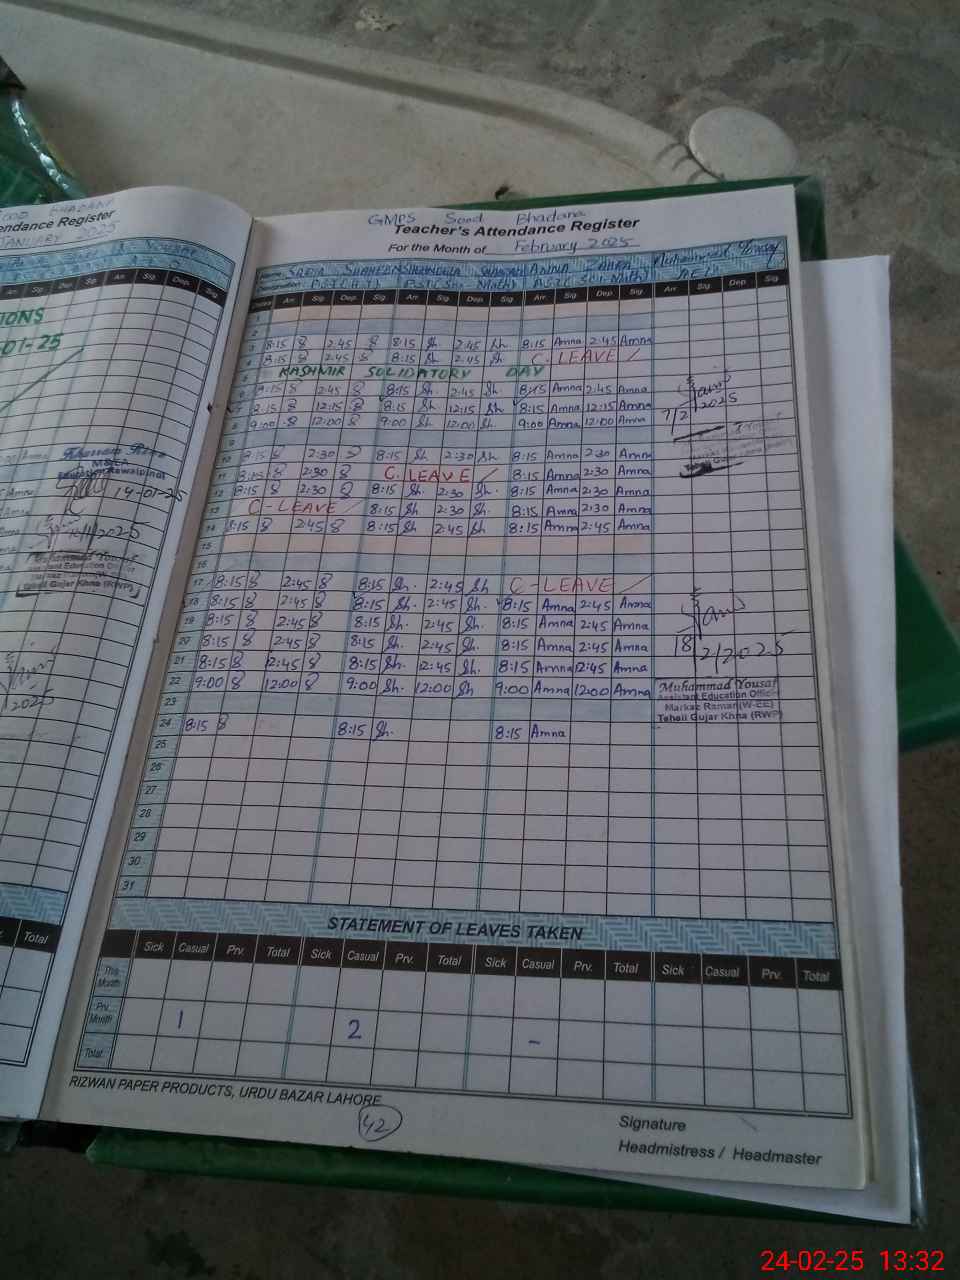 GMPS Sood Bhadana
Teacher's Attendance Register
For the Month of February 2025
SADIA SHAHEEN AMNA ZAHRA Muhammad Yousaf
Arr. Sig Dep. Sig Arr. Sig Dep. Sig Arr. Sig Dep. Sig Arr. Sig Dep Sig
2
3 8:15 2:45 8:15 Sh. 2:45 Sh. 8:15 Amna 2:45 Amna
4 8:15 2:45 8:15 Sh. 2:45 Sh. C. LEAVE
5 KASHMIR SOLIDATORY DAY
6 8:15 2:45 8:15 Sh. 2:45 Sh. 8:15 Amna 2:45 Amna
7 8:15 12:15 8:15 Sh. 12:15 Sh 8:15 Amna 12:15 Amna 7/2/2025
8 9:00 12:00 9:00 Sh. 12:00 Sh. 9:00 Amna 12:00 Amna
9
10 8:15 2:30 8:15 Sh. 2:30 Sh 8:15 Amna 2:30 Amna
11 8:15 2:30 C. LEAVE 8:15 Amna 2:30 Amna
12 8:15 2:30 8:15 Sh. 2:30 Sh. 8:15 Amna 2:30 Amna
13 C-LEAVE 8:15 Sh 2:30 Sh. 8:15 Amna 2:30 Amna
14 8:15 2:45 8:15 Sh 2:45 Sh 8:15 Amna 2:45 Amna
15
16
17 8:15 2:45 8:15 Sh. 2:45 Sh C-LEAVE
18 8:15 2:45 8:15 Sh. 2:45 Sh. 8:15 Amna 2:45 Amna
19 8:15 2:45 8:15 Sh. 2:45 Sh. 8:15 Amna 2:45 Amna
20 8:15 2:45 8:15 Sh. 2:45 Sh. 8:15 Amna 2:45 Amna 18/2/2025
21 8:15 2:45 8:15 Sh. 2:45 Sh. 8:15 Amna 2:45 Amna
22 9:00 12:00 9:00 Sh. 12:00 Sh 9:00 Amna 12:00 Amna
Muhammad Yousaf
Assistant Education Officer
Markaz Raman (W-EE)
Tehsil Gujar Khna (RWP)
23
24 8:15 8:15 Sh. 8:15 Amna
25
26
27
28
29
30
31
STATEMENT OF LEAVES TAKEN
Sick Casual Prv. Total Sick Casual Prv. Total Sick Casual Prv. Total Sick Casual Prv. Total
This Month
Prv. Month 1 2 -
Total
RIZWAN PAPER PRODUCTS, URDU BAZAR LAHORE
42
Signature
Headmistress / Headmaster
endance Register
JANUARY 2025
IONS
01-25
14-01-25
Muhammad Yousaf
Assistant Education Officer
Tehsil Gujar Khna (RWP)
2025
Total
24-02-25 13:32